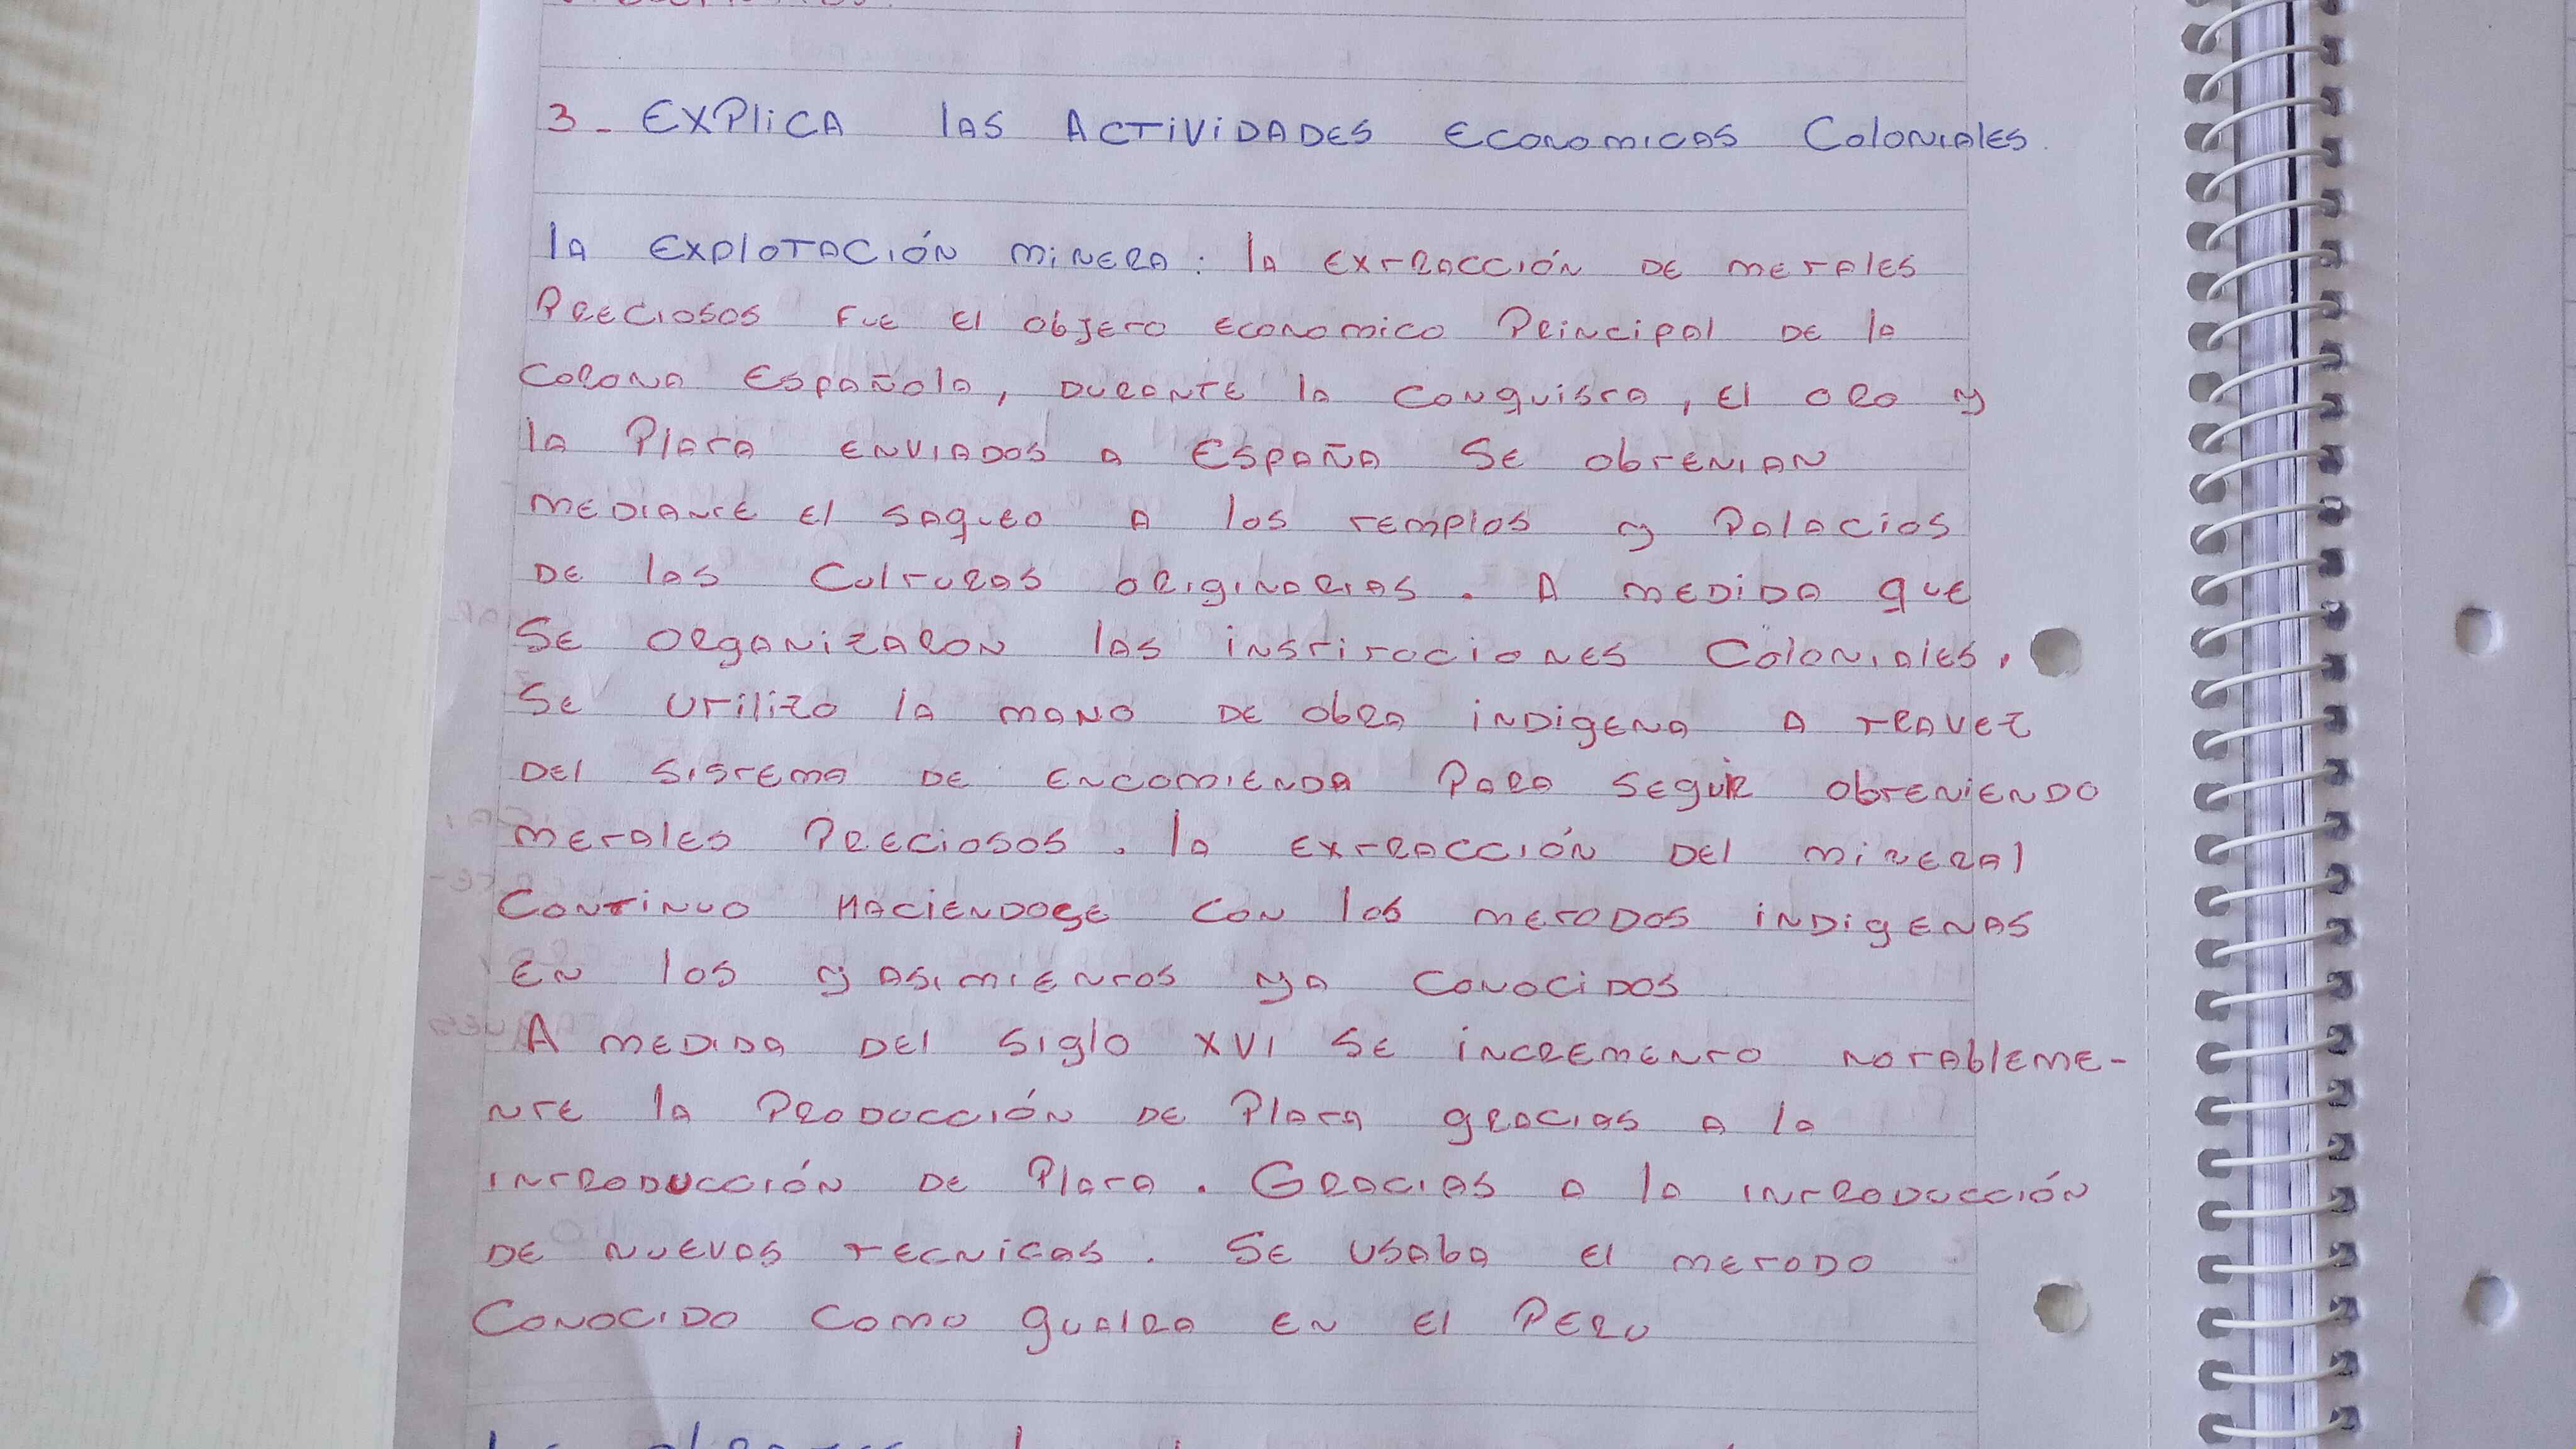 3 - EXPLICA las ACTIVIDADES Economicas Coloniales.
la EXPLOTACIÓN MINERA: la EXTRACCIÓN DE METALES
PRECIOSOS FUE El objeto economico Principal DE la
Corona Española, DURANTE la Conquista, El oro y
la Plata ENVIADOS A ESPAÑA SE obTENIAN
MEDIANTE El saqueo A los TEMPlos y Palacios
DE las Culturas originarias. A MEDIDA que
SE ORgANIZARON las instituciones Coloniales,
Se utilizo la mano DE obra indigena A travez
DEl sistema DE Encomienda Para seguir obteniendo
METALES Preciosos. la extracción DEl mineral
Continuo Haciendose con los metodos indigenas
EN los yasimientos ya conocidos
A MEDIDA DEl siglo XVI SE incremento notableme-
nte la Producción DE Plata gracias a la
introducción DE Plata. Gracias a la introducción
DE nuevas tecnicas. SE usaba El metodo
Conocido Como guaira EN El PERU